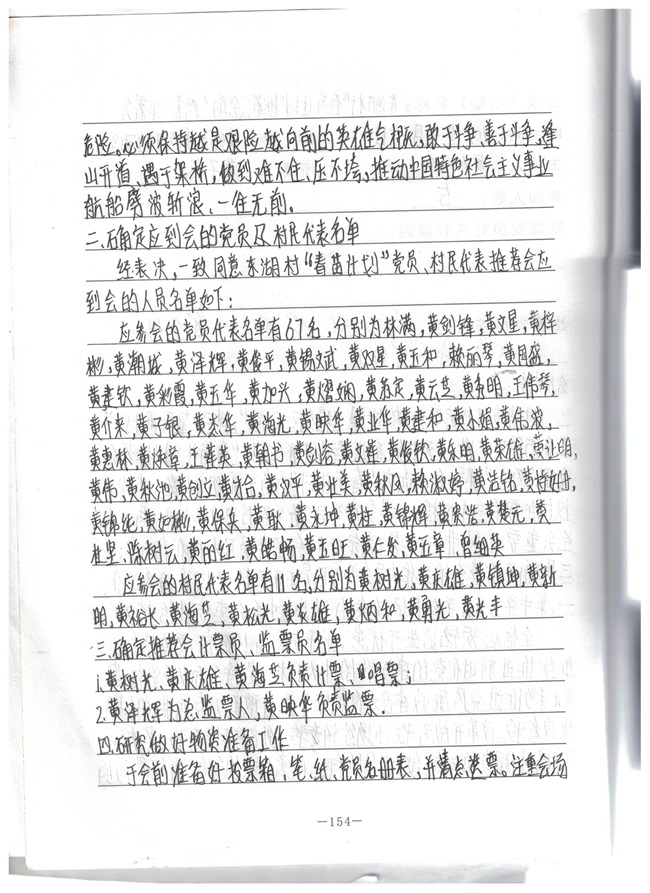 危险。必须保持越是艰险越向前的英雄气概,敢于斗争、善于斗争,逢
山开道、遇于架桥,做到难不住、压不垮,推动中国特色社会主义事业
航船劈波斩浪、一往无前。
二.确定应到会的党员及村民代表名单
经表决,一致同意东湖村“春苗计划”党员、村民代表推荐会应
到会的人员名单如下:
应参会的党员代表名单有67名,分别为林满,黄剑锋,黄文星,黄梓
彬,黄潮城,黄泽辉,黄俊平,黄锡文武,黄双星,黄五和,赖丽琴,黄月盛,
黄建钦,黄秋霞,黄五华,黄加兴,黄熠炳,黄芬定,黄云芝,黄东明,王伟琴,
黄介来,黄子银,黄杰华,黄海光,黄映华,黄业华,黄建和,黄小娟,黄伟波,
黄惠林,黄焕章,王莲英,黄朝书,黄剑容,黄文莲,黄俊钦,黄永明,黄英雄,黄让明,
黄伟,黄秋池,黄创立,黄合,黄汉平,黄壮英,黄秋凤,赖淑婷,黄浩铭,黄册,
黄锦纯,黄旭彬,黄保兵,黄耿,黄永坤,黄桂,黄锦辉,黄崇浩,黄楚元,黄
坚,陈树云,黄丽红,黄皓畅,黄五旺,黄仁发,黄五章,曾细英
应参会的村民代表名单有11名,分别为黄树光,黄庆雄,黄镇坤,黄新
明,黄裕长,黄海芝,黄松光,黄炎雄,黄炳和,黄勇光,黄光丰
三.确定推荐会计票员、监票员名单
1.黄树光、黄庆雄、黄海芝负责计票、唱票;
2.黄泽辉为总监票人,黄映华负责监票.
四.研究做好物资准备工作
于会前准备好投票箱,笔、纸、党员名册表,并清点选票。注重会场
—154—